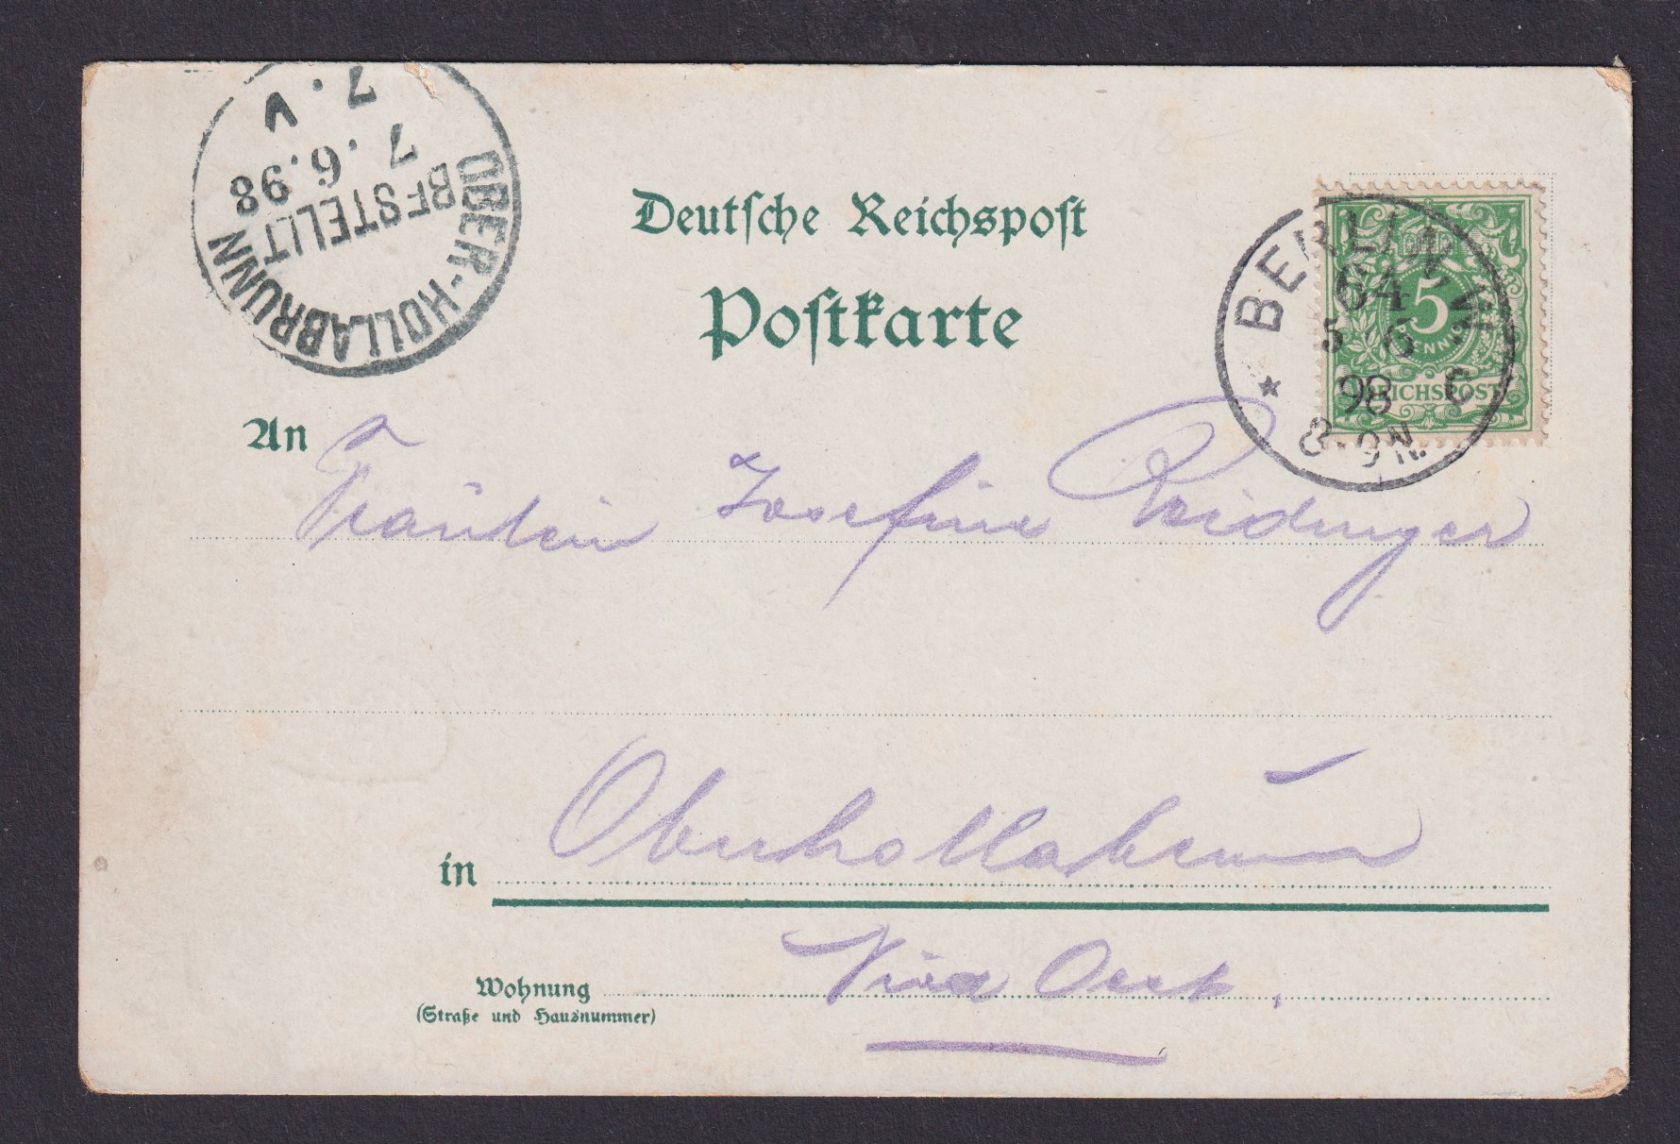 OBER-HOLLABRUNN
BESTELLT
7.6.98
7.V
Deutsche Reichspost
Postkarte
BERLIN S.W.
64
5 6
98
8-9 N.
5
PFENNIG
REICHSPOST
An Fräulein Josefine Reidinger
in Oberhollabrunn
Wohnung
(Straße und Hausnummer)